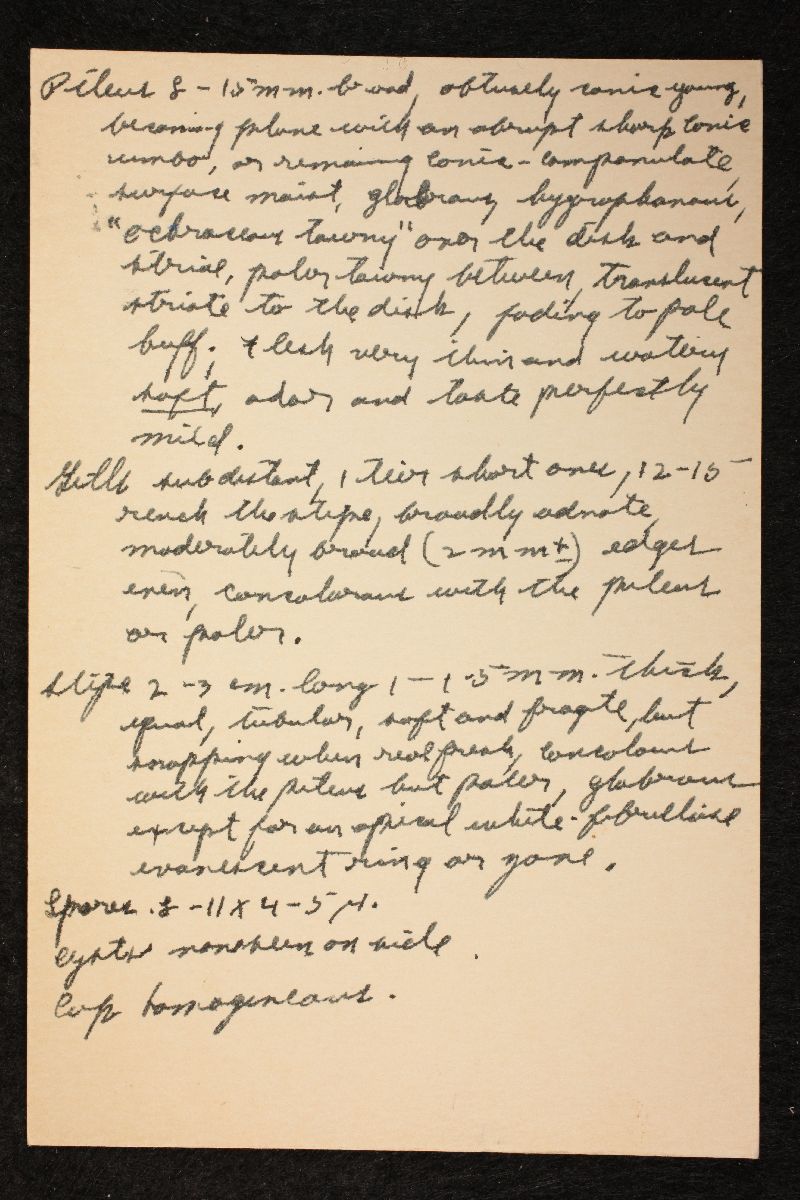 Pileus 8-15 mm. broad, obtusely conic young,
becoming plane with an abrupt sharp conic
umbo, or remaining conic-campanulate,
surface moist, glabrous, hygrophanous,
"ochraceous tawny" over the disk and
striae, paler tawny between, translucent
striate to the disk, fading to pale
buff; flesh very thin and watery
soft, odor and taste perfectly
mild.
Gills subdistant, 1 tier short ones, 12-15
reach the stipe, broadly adnate,
moderately broad (2 mm±) edges
even, concolorous with the pileus
or paler.
Stipe 2-3 cm. long 1-1.5 mm. thick,
equal, tubular, soft and fragile, but
snapping when real fresh, concolorous
with the pileus but paler, glabrous
except for an apical white-fibrillose
evanescent ring or zone.
Spores 8-11 x 4-5 μ.
Cysts none seen on side.
Cup homogeneous.